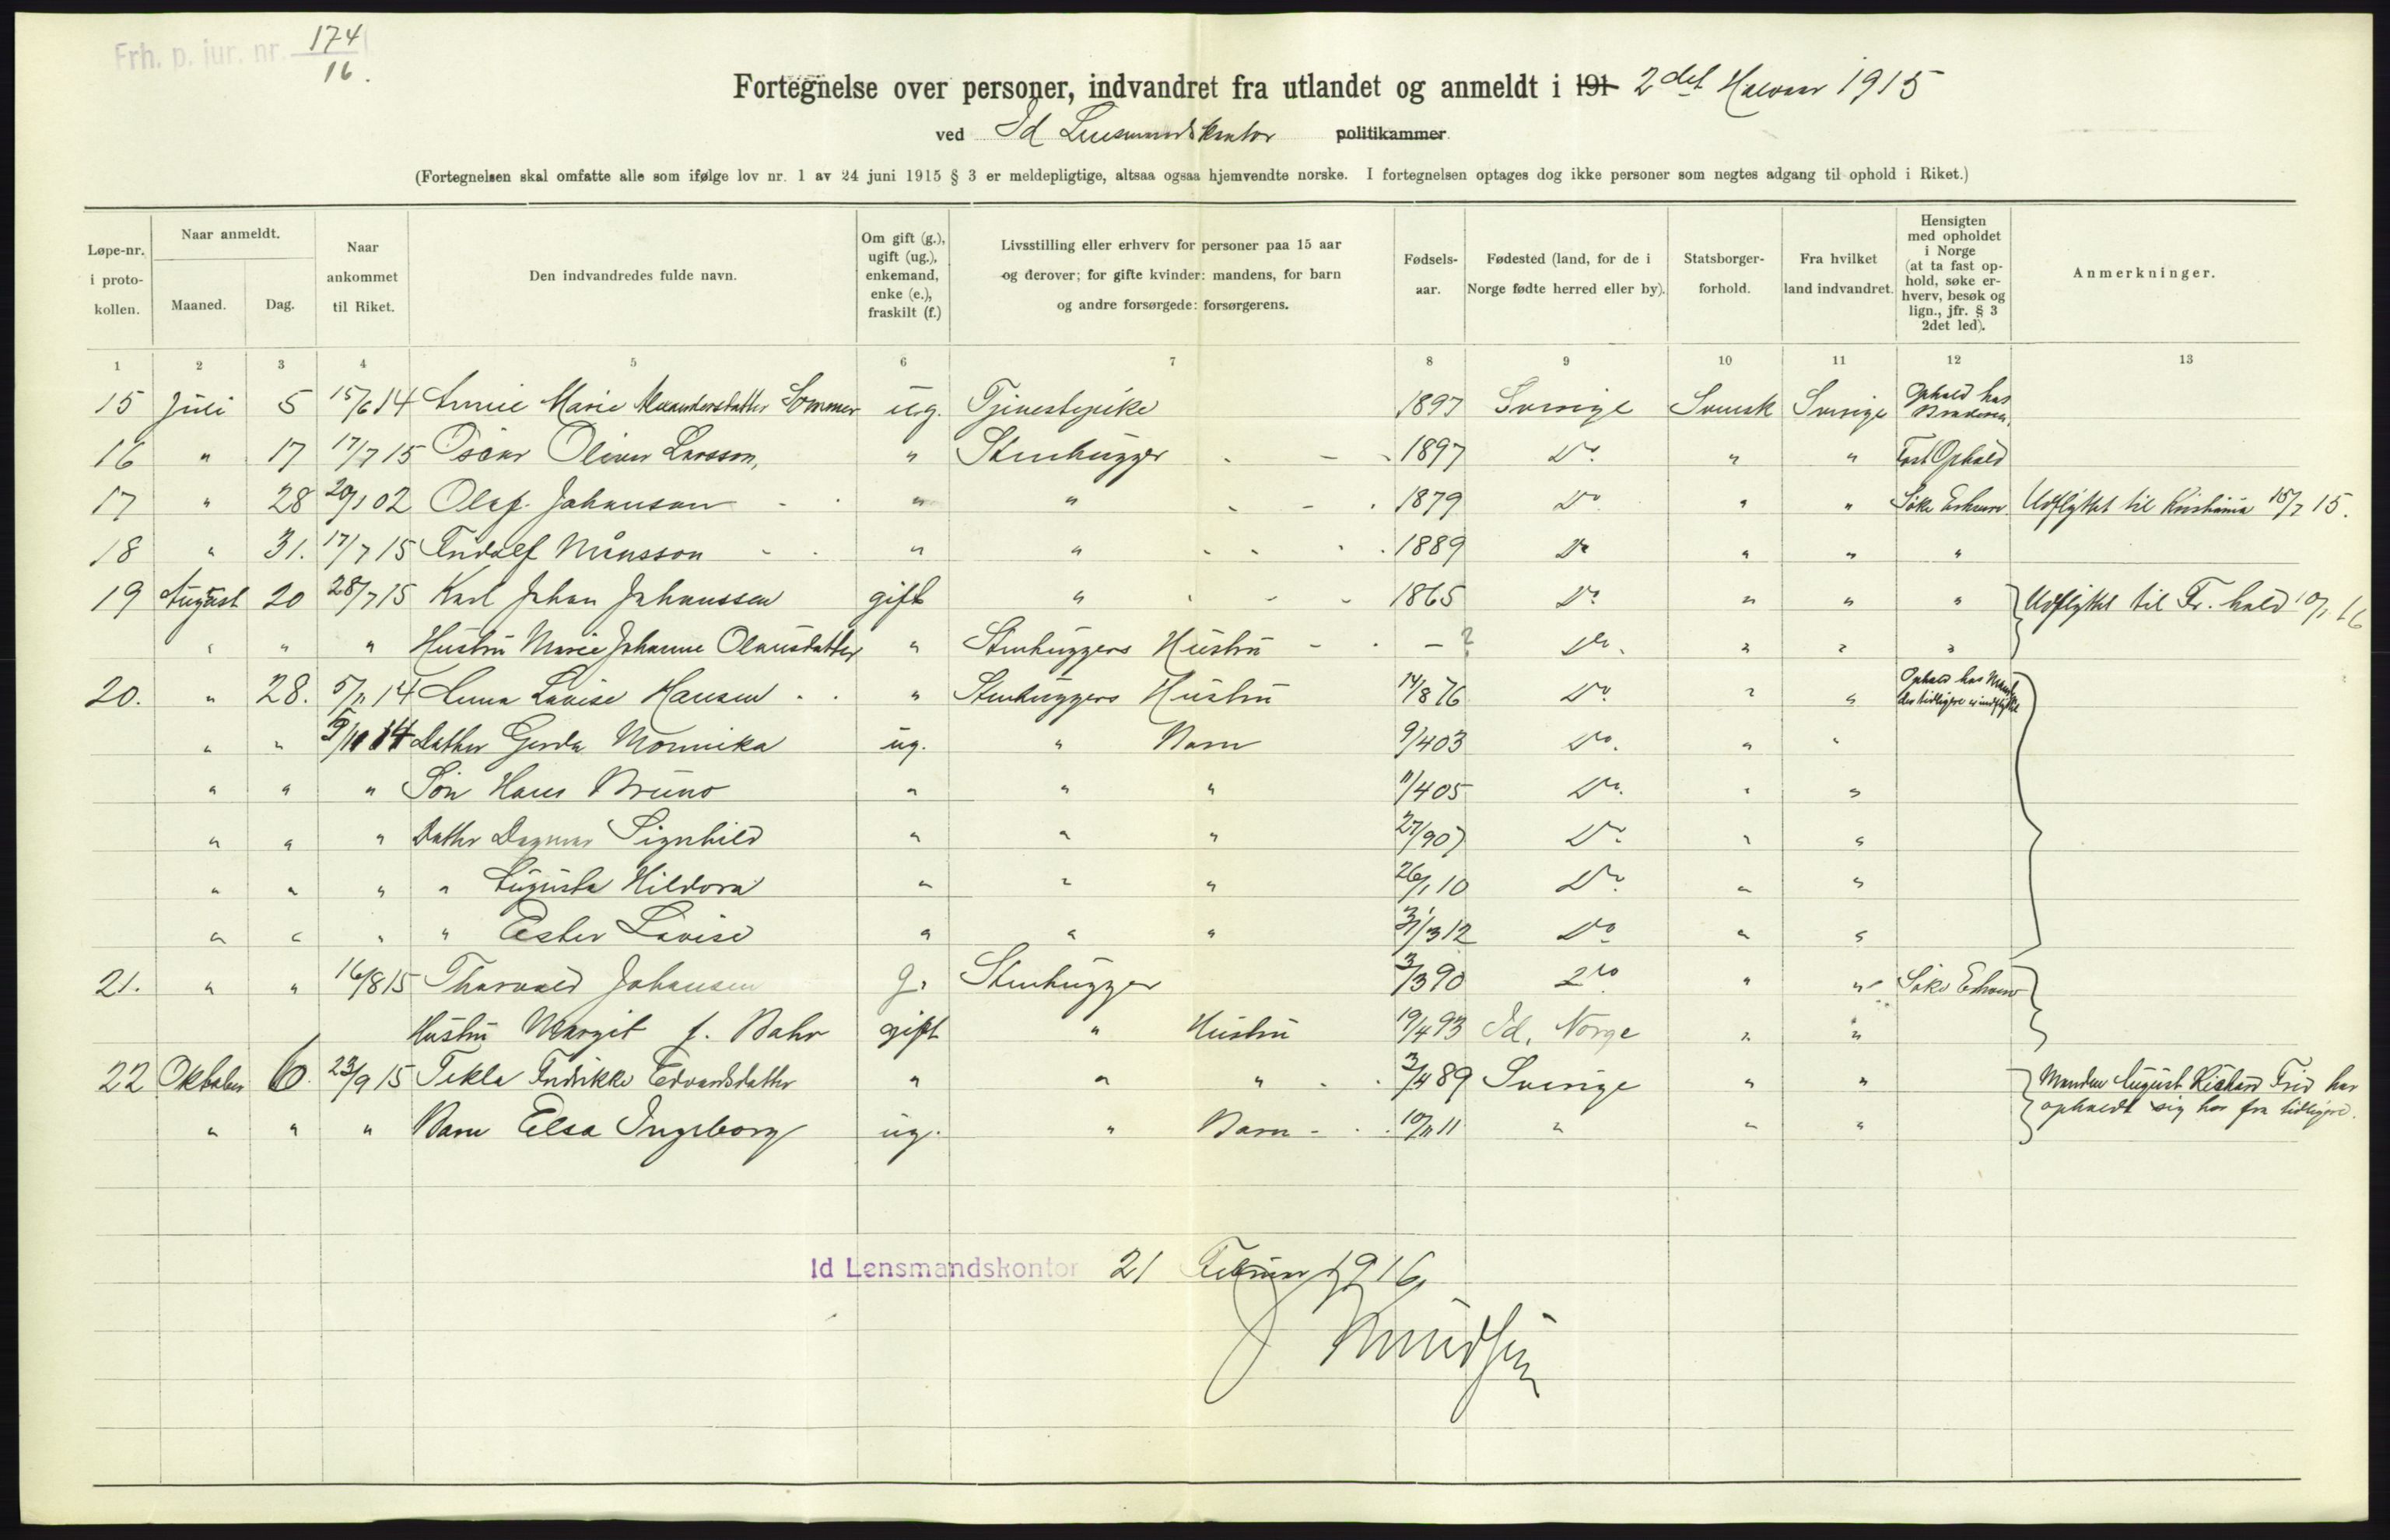 Frh. p. jur. nr. 174/16.
Fortegnelse over personer, indvandret fra utlandet og anmeldt i 191 2det Halvaar 1915
ved Id Lensmandskontor politikammer
(Fortegnelsen skal omfatte alle som ifølge lov nr. 1 av 24 juni 1915 § 3 er meldepligtige, altsaa ogsaa hjemvendte norske. I fortegnelsen optages dog ikke personer som negtes adgang til ophold i Riket.)
Løpe-nr. i proto-kollen. Naar anmeldt. Maaned. Dag. Naar ankommet til Riket. Den indvandredes fulde navn. Om gift (g.), ugift (ug.), enkemand, enke (e.), fraskilt (f.) Livsstilling eller erhverv for personer paa 15 aar og derover; for gifte kvinder: mandens, for barn og andre forsørgede: forsørgerens. Fødsels-aar. Fødested (land, for de i Norge fødte herred eller by). Statsborger-forhold. Fra hvilket land indvandret. Hensigten med opholdet i Norge (at ta fast op-hold, søke er-hverv, besøk og lign., jfr. § 3 2det led). Anmerkninger.
1 2 3 4 5 6 7 8 9 10 11 12 13
15 Juli 5 15/6 14 Annie Marie Alexandersdatter Sommer ug. Tjenestepike 1897 Sverige Svensk Sverige Ophold hos Broderen.
16 " 17 17/7 15 Oscar Oliver Larsson, " Stenhugger - - - 1897 Do. " " Fast Ophold
17 " 28 20/1 02 Olaf Johanson - - " " - - - 1879 Do " " Søke Erhverv Udflyttet til Kristiania 15/7 15.
18 " 31. 17/7 15 Fridolf Månsson - - " " - - - - 1889 Do " " "
19 August 20 28/7 15 Karl Johan Johanssen gift " - - - 1865 Do. " " " Udflyttet til Fr. hald 10/1 16
" " " Hustru Marie Johanne Olausdatter " Stenhuggers Hustru - - - ? Do. " " "
20. " 28. 5/11 14 Anna Lovise Hansen - - " Stenhuggers Hustru 14/8 76 Do. " " Ophold hos Mand der tidligere er indflyttet
" " 5/11 14 Datter Gerda Monnika ug. " Barn 9/4 03 Do. " "
" " " Søn Hans Bruno " " " 11/4 05 Do. " "
" " " Datter Dagmar Signhild " " " 27/9 07 Do. " "
" " " " Augusta Hildora " " " 26/1 10 Do. " "
" " " " Ester Lovise " " " 31/3 12 Do " "
21. " " 16/8 15 Thorvald Johansen g. Stenhugger 3/3 90 Do " " Søke Erhverv
Hustru Margit f. Bahr gift " Hustru 19/4 93 Id, Norge " "
22 Oktober 6. 23/9 15 Tekla Fredrikke Edvardsdatter " " " - - 2/4 89 Sverige " " Manden August Rickard Frid har
" " " Barn Elsa Ingeborg ug. " Barn - - - 10/11 11 " " " opholdt sig her fra tidligere.
Id Lensmandskontor 21 Februar 1916
J Knudsen